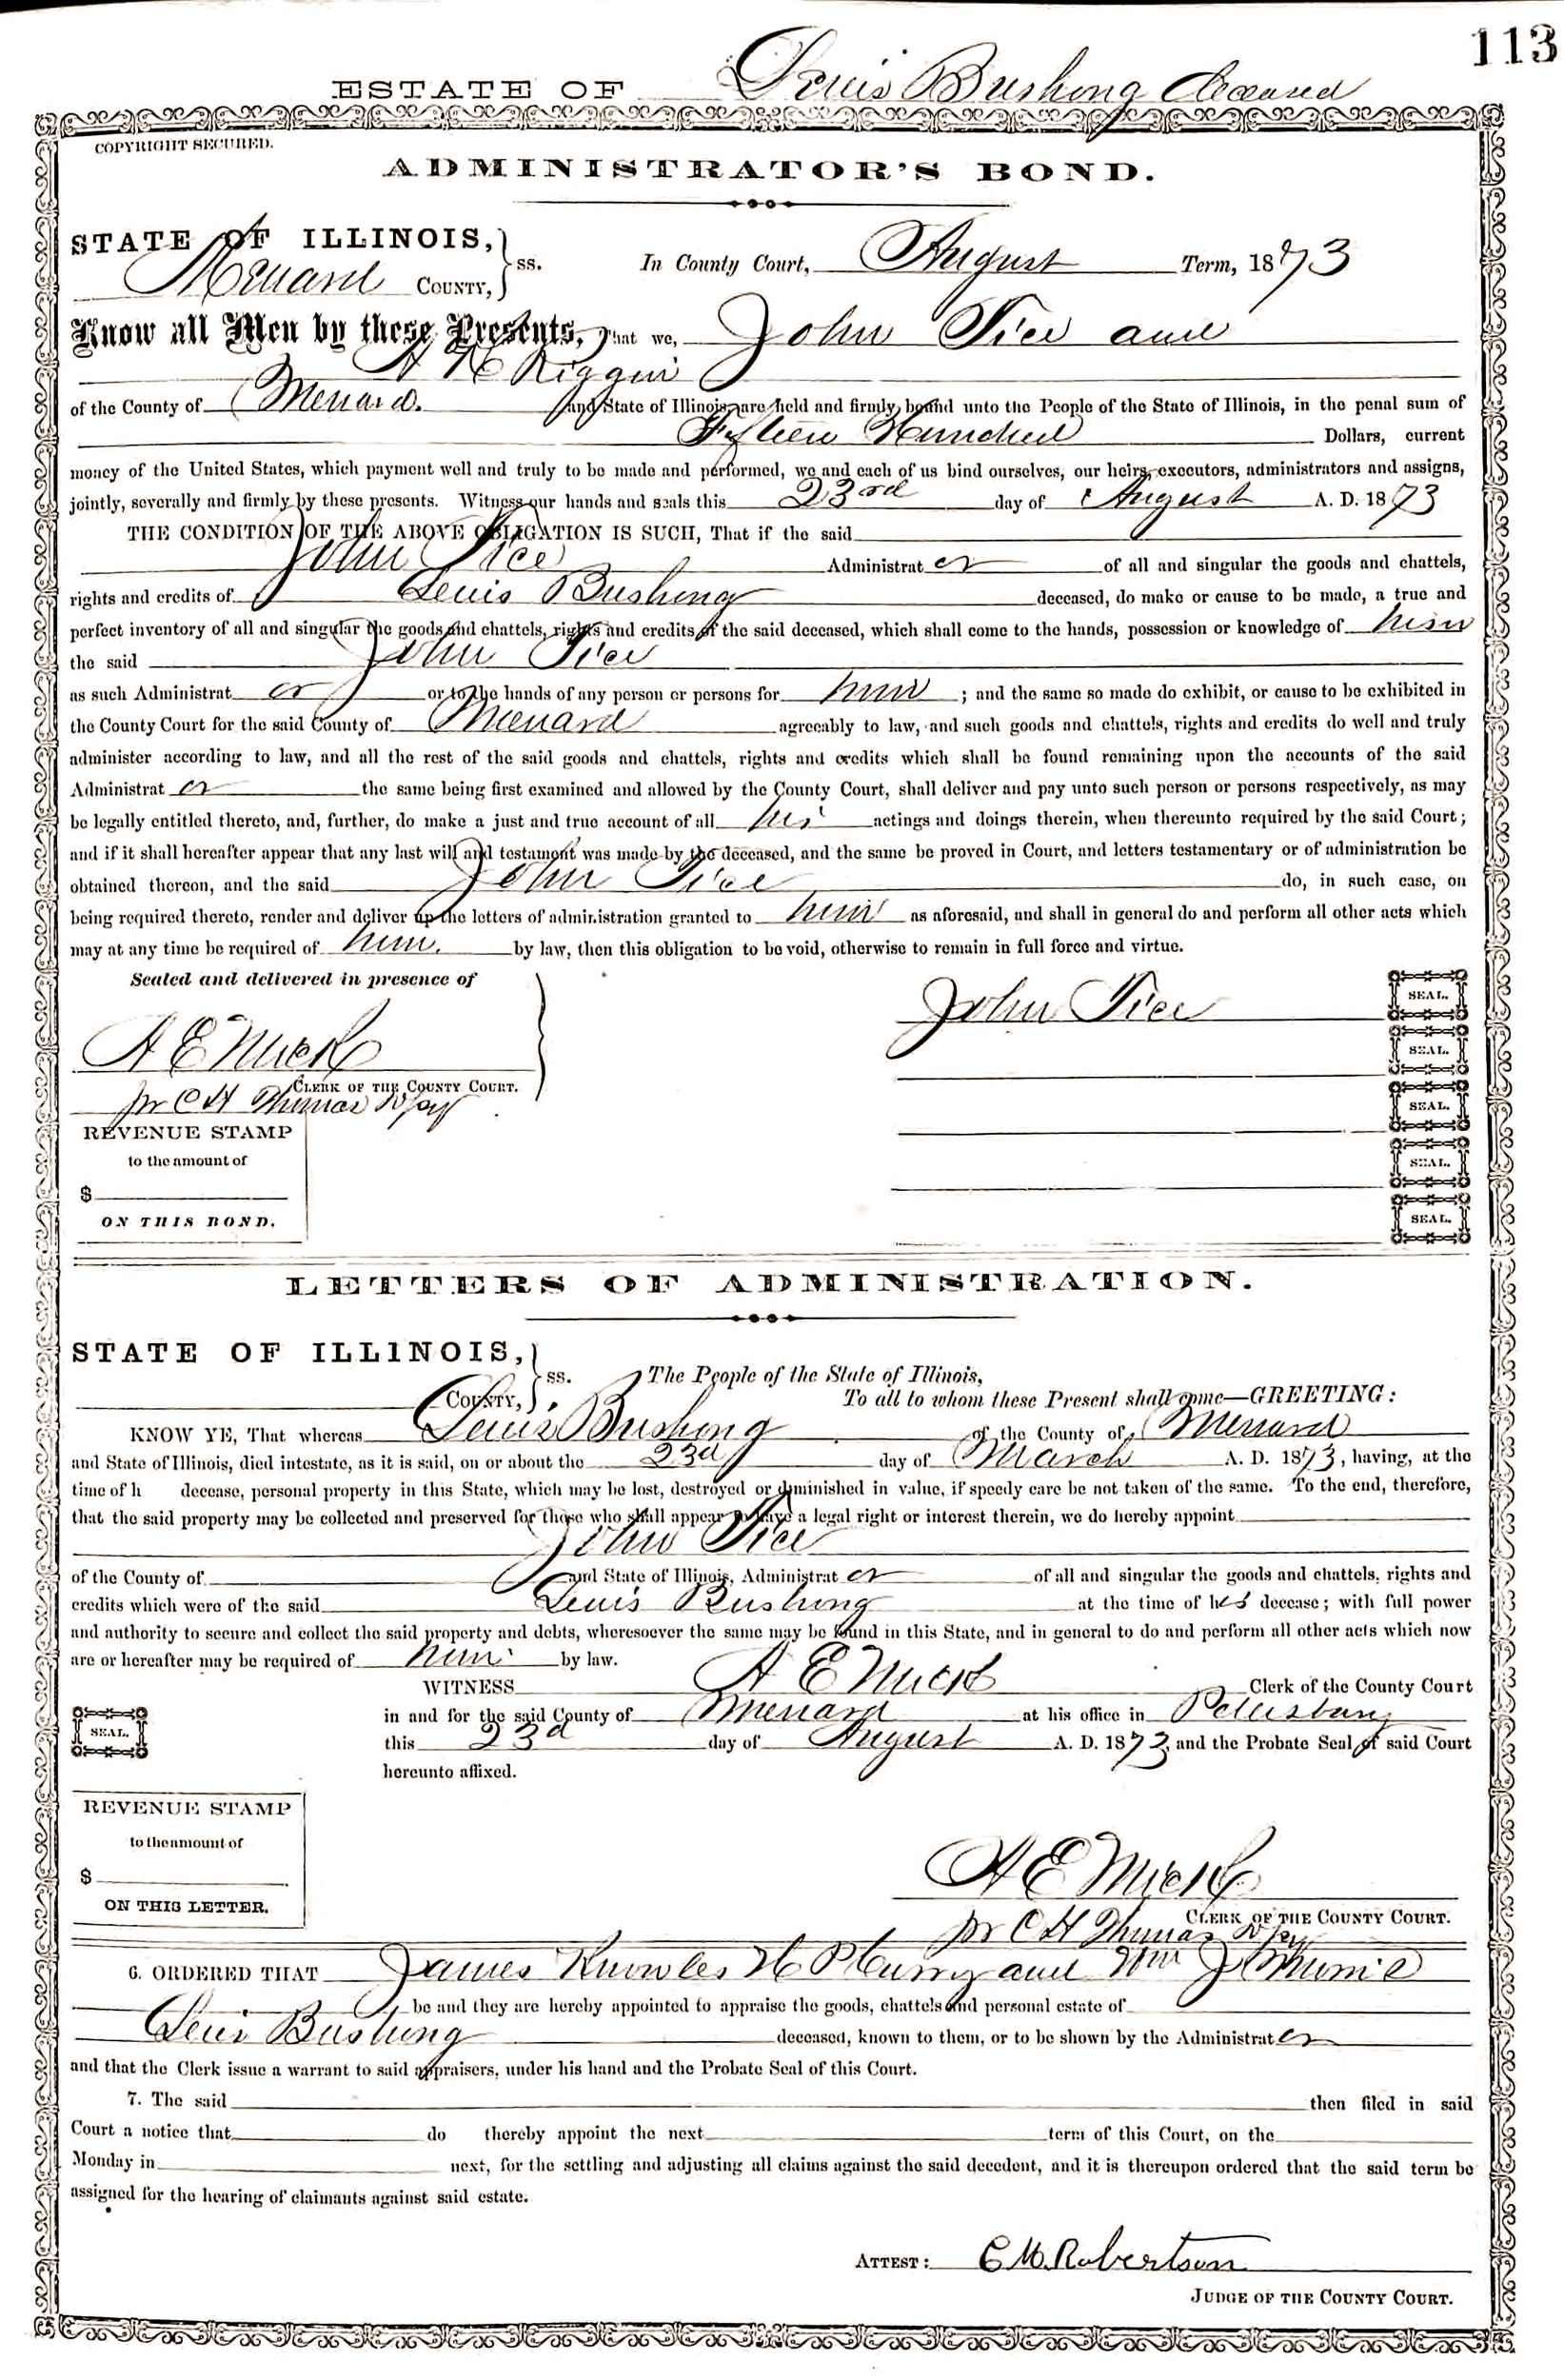 113
ESTATE OF Lewis Bushong deceased
COPYRIGHT SECURED.
ADMINISTRATOR'S BOND.
STATE OF ILLINOIS,
Menard COUNTY, } ss. In County Court, August Term, 1873
Know all Men by these Presents, That we, John Tice and
H Riggin
of the County of Menard. and State of Illinois, are held and firmly bound unto the People of the State of Illinois, in the penal sum of
Fifteen Hundred Dollars, current
money of the United States, which payment well and truly to be made and performed, we and each of us bind ourselves, our heirs, executors, administrators and assigns,
jointly, severally and firmly by these presents. Witness our hands and seals this 23rd day of August A. D. 1873
THE CONDITION OF THE ABOVE OBLIGATION IS SUCH, That if the said
John Tice Administrat or of all and singular the goods and chattels,
rights and credits of Lewis Bushong deceased, do make or cause to be made, a true and
perfect inventory of all and singular the goods and chattels, rights and credits of the said deceased, which shall come to the hands, possession or knowledge of him
the said John Tice
as such Administrat or or to the hands of any person or persons for him ; and the same so made do exhibit, or cause to be exhibited in
the County Court for the said County of Menard agreeably to law, and such goods and chattels, rights and credits do well and truly
administer according to law, and all the rest of the said goods and chattels, rights and credits which shall be found remaining upon the accounts of the said
Administrat or the same being first examined and allowed by the County Court, shall deliver and pay unto such person or persons respectively, as may
be legally entitled thereto, and, further, do make a just and true account of all his actings and doings therein, when thereunto required by the said Court;
and if it shall hereafter appear that any last will and testament was made by the deceased, and the same be proved in Court, and letters testamentary or of administration be
obtained thereon, and the said John Tice do, in such case, on
being required thereto, render and deliver up the letters of administration granted to him as aforesaid, and shall in general do and perform all other acts which
may at any time be required of him. by law, then this obligation to be void, otherwise to remain in full force and virtue.
Sealed and delivered in presence of
John Tice SEAL.
A E Mick SEAL.
CLERK OF THE COUNTY COURT.
pr C H Thomas Dpy SEAL.
REVENUE STAMP
to the amount of SEAL.
$
ON THIS BOND. SEAL.
LETTERS OF ADMINISTRATION.
STATE OF ILLINOIS,
COUNTY, } ss. The People of the State of Illinois,
To all to whom these Present shall come—GREETING:
KNOW YE, That whereas Lewis Bushong of the County of Menard
and State of Illinois, died intestate, as it is said, on or about the 23d day of March A. D. 1873, having, at the
time of h decease, personal property in this State, which may be lost, destroyed or diminished in value, if speedy care be not taken of the same. To the end, therefore,
that the said property may be collected and preserved for those who shall appear to have a legal right or interest therein, we do hereby appoint
John Tice
of the County of and State of Illinois, Administrat or of all and singular the goods and chattels, rights and
credits which were of the said Lewis Bushong at the time of his decease; with full power
and authority to secure and collect the said property and debts, wheresoever the same may be found in this State, and in general to do and perform all other acts which now
are or hereafter may be required of him by law.
WITNESS A E Mick Clerk of the County Court
SEAL. in and for the said County of Menard at his office in Petersburg
this 23d day of August A. D. 1873 and the Probate Seal of said Court
hereunto affixed.
REVENUE STAMP
to the amount of
$
ON THIS LETTER.
A E Mick
CLERK OF THE COUNTY COURT.
pr C H Thomas Dpy
6. ORDERED THAT James Knowles H P Curry and Wm J
be and they are hereby appointed to appraise the goods, chattels and personal estate of
Lewis Bushong deceased, known to them, or to be shown by the Administrat or
and that the Clerk issue a warrant to said appraisers, under his hand and the Probate Seal of this Court.
7. The said then filed in said
Court a notice that do thereby appoint the next term of this Court, on the
Monday in next, for the settling and adjusting all claims against the said decedent, and it is thereupon ordered that the said term be
assigned for the hearing of claimants against said estate.
ATTEST: C M. Robertson
JUDGE OF THE COUNTY COURT.